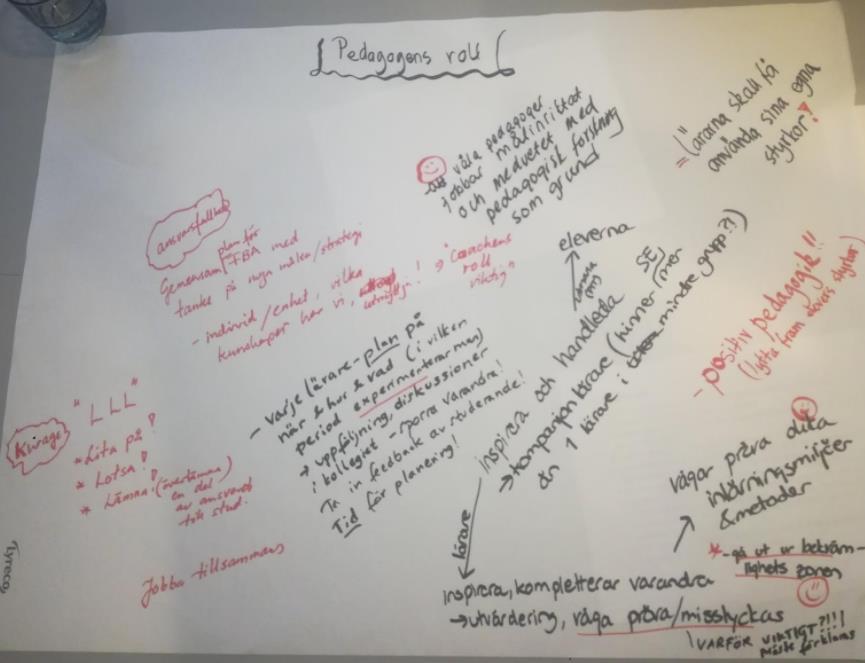 Pedagogens roll
våra pedagoger
jobbar målinriktat
och medvetet med
pedagogisk forskning
som grund
= lärarna skall få
använda sina egna
styrkor!
ansvarsfullhet
Gemensam plan för FBA med
tanke på nya målen/strategi
- individ/enhet, vilka
kunskaper har vi, utnyttja! → "coachens
roll
viktig"
eleverna
- positiv pedagogik!!
(lyfta fram elevers styrkor)
- varje lärare - plan på
när & hur & vad (i vilken
period experimenterar man)
→ uppföljning, diskussioner
i kollegiet - sporra varandra!
Ta in feedback av studerande!
Tid för planering!
inspirera och handleda
→ kompanjonlärare (hinner SE mer
än 1 lärare i mindre grupp?!)
Kurage
"LLL"
* Lita på!
* Lotsa!
* Lämna! (överlämna)
en del
av ansvaret
till stud.
Jobba tillsammans
lärare
inspirera, kompletterar varandra
→ utvärdering, våga pröva/misslyckas
VARFÖR VIKTIGT?!!!
måste förklaras
vågar pröva olika
inlärningsmiljöer
& metoder
* - gå ut ur bekväm-
lighets zonen
Lyreco